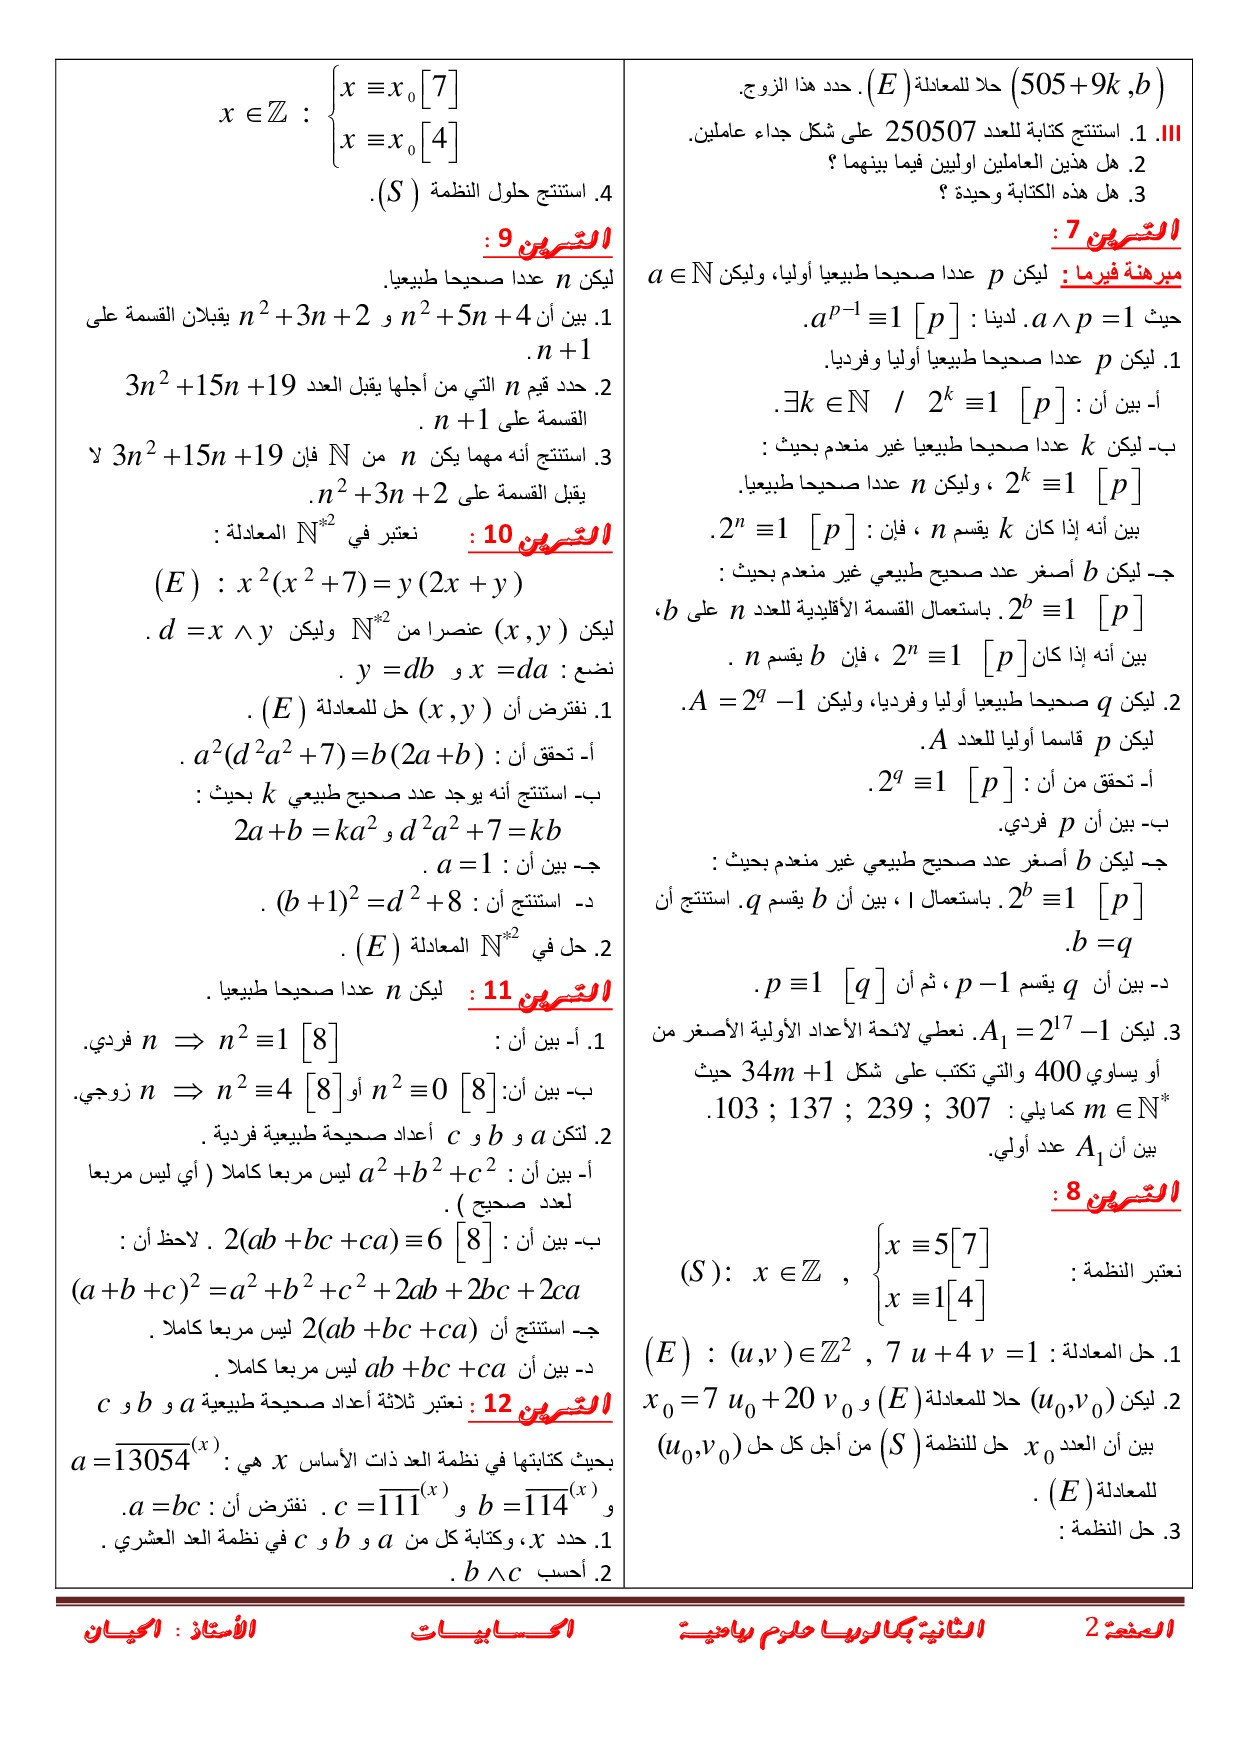 (505+9k ,b) حلا للمعادلة (E). حدد هذا الزوج.
III. 1. استنتج كتابة للعدد 250507 على شكل جداء عاملين.
2. هل هذين العاملين اوليين فيما بينهما ؟
3. هل هذه الكتابة وحيدة ؟
التمرين 7 :
مبرهنة فيرما : ليكن p عددا صحيحا طبيعيا أوليا، وليكن a ∈ ℕ
حيث a ∧ p = 1. لدينا : a^{p−1} ≡ 1 [p].
1. ليكن p عددا صحيحا طبيعيا أوليا وفرديا.
أ- بين أن : ∃k ∈ ℕ / 2^k ≡ 1 [p].
ب- ليكن k عددا صحيحا طبيعيا غير منعدم بحيث :
2^k ≡ 1 [p] ، وليكن n عددا صحيحا طبيعيا.
بين أنه إذا كان k يقسم n ، فإن : 2^n ≡ 1 [p].
جـ- ليكن b أصغر عدد صحيح طبيعي غير منعدم بحيث :
2^b ≡ 1 [p]. باستعمال القسمة الأقليدية للعدد n على b،
بين أنه إذا كان 2^n ≡ 1 [p] ، فإن b يقسم n .
2. ليكن q صحيحا طبيعيا أوليا وفرديا، وليكن A = 2^q − 1.
ليكن p قاسما أوليا للعدد A.
أ- تحقق من أن : 2^q ≡ 1 [p].
ب- بين أن p فردي.
جـ- ليكن b أصغر عدد صحيح طبيعي غير منعدم بحيث :
2^b ≡ 1 [p]. باستعمال ا ، بين أن b يقسم q. استنتج أن
b = q.
د- بين أن q يقسم p − 1 ، ثم أن p ≡ 1 [q] .
3. ليكن A₁ = 2^{17} − 1. نعطي لائحة الأعداد الأولية الأصغر من
أو يساوي 400 والتي تكتب على شكل 34m + 1 حيث
m ∈ ℕ* كما يلي : 103 ; 137 ; 239 ; 307.
بين أن A₁ عدد أولي.
التمرين 8 :
نعتبر النظمة : (S): x ∈ ℤ , { x ≡ 5[7]
x ≡ 1[4]
1. حل المعادلة : (E) : (u,v) ∈ ℤ² , 7 u + 4 v = 1
2. ليكن (u₀,v₀) حلا للمعادلة (E) و x₀ = 7 u₀ + 20 v₀
بين أن العدد x₀ حل للنظمة (S) من أجل كل حل (u₀,v₀)
للمعادلة (E) .
3. حل النظمة :
x ∈ ℤ : { x ≡ x₀[7]
x ≡ x₀[4]
4. استنتج حلول النظمة (S).
التمرين 9 :
ليكن n عددا صحيحا طبيعيا.
1. بين أن n² + 5n + 4 و n² + 3n + 2 يقبلان القسمة على
n + 1 .
2. حدد قيم n التي من أجلها يقبل العدد 3n² + 15n + 19
القسمة على n + 1 .
3. استنتج أنه مهما يكن n من ℕ فإن 3n² + 15n + 19 لا
يقبل القسمة على n² + 3n + 2.
التمرين 10 : نعتبر في ℕ*² المعادلة :
(E) : x²(x² + 7) = y(2x + y)
ليكن (x, y) عنصرا من ℕ*² وليكن d = x ∧ y .
نضع : x = da و y = db .
1. نفترض أن (x, y) حل للمعادلة (E) .
أ- تحقق أن : a²(d²a² + 7) = b(2a + b) .
ب- استنتج أنه يوجد عدد صحيح طبيعي k بحيث :
d²a² + 7 = kb و 2a + b = ka²
جـ- بين أن : a = 1 .
د- استنتج أن : (b + 1)² = d² + 8 .
2. حل في ℕ*² المعادلة (E) .
التمرين 11 : ليكن n عددا صحيحا طبيعيا .
1. أ- بين أن : n ⇒ n² ≡ 1 [8] فردي.
ب- بين أن: n ⇒ n² ≡ 4 [8] أو n² ≡ 0 [8] زوجي.
2. لتكن a و b و c أعداد صحيحة طبيعية فردية .
أ- بين أن : a² + b² + c² ليس مربعا كاملا ( أي ليس مربعا
لعدد صحيح ) .
ب- بين أن : 2(ab + bc + ca) ≡ 6 [8] . لاحظ أن :
(a + b + c)² = a² + b² + c² + 2ab + 2bc + 2ca
جـ- استنتج أن 2(ab + bc + ca) ليس مربعا كاملا .
د- بين أن ab + bc + ca ليس مربعا كاملا .
التمرين 12 : نعتبر ثلاثة أعداد صحيحة طبيعية a و b و c
بحيث كتابتها في نظمة العد ذات الأساس x هي : a = \overline{13054}^{(x)}
و b = \overline{114}^{(x)} و c = \overline{111}^{(x)} . نفترض أن : a = bc.
1. حدد x، وكتابة كل من a و b و c في نظمة العد العشري .
2. أحسب b ∧ c .
الصفحة 2 الثانية بكالوريا علوم رياضية الحسابيات الأستاذ : الحيان